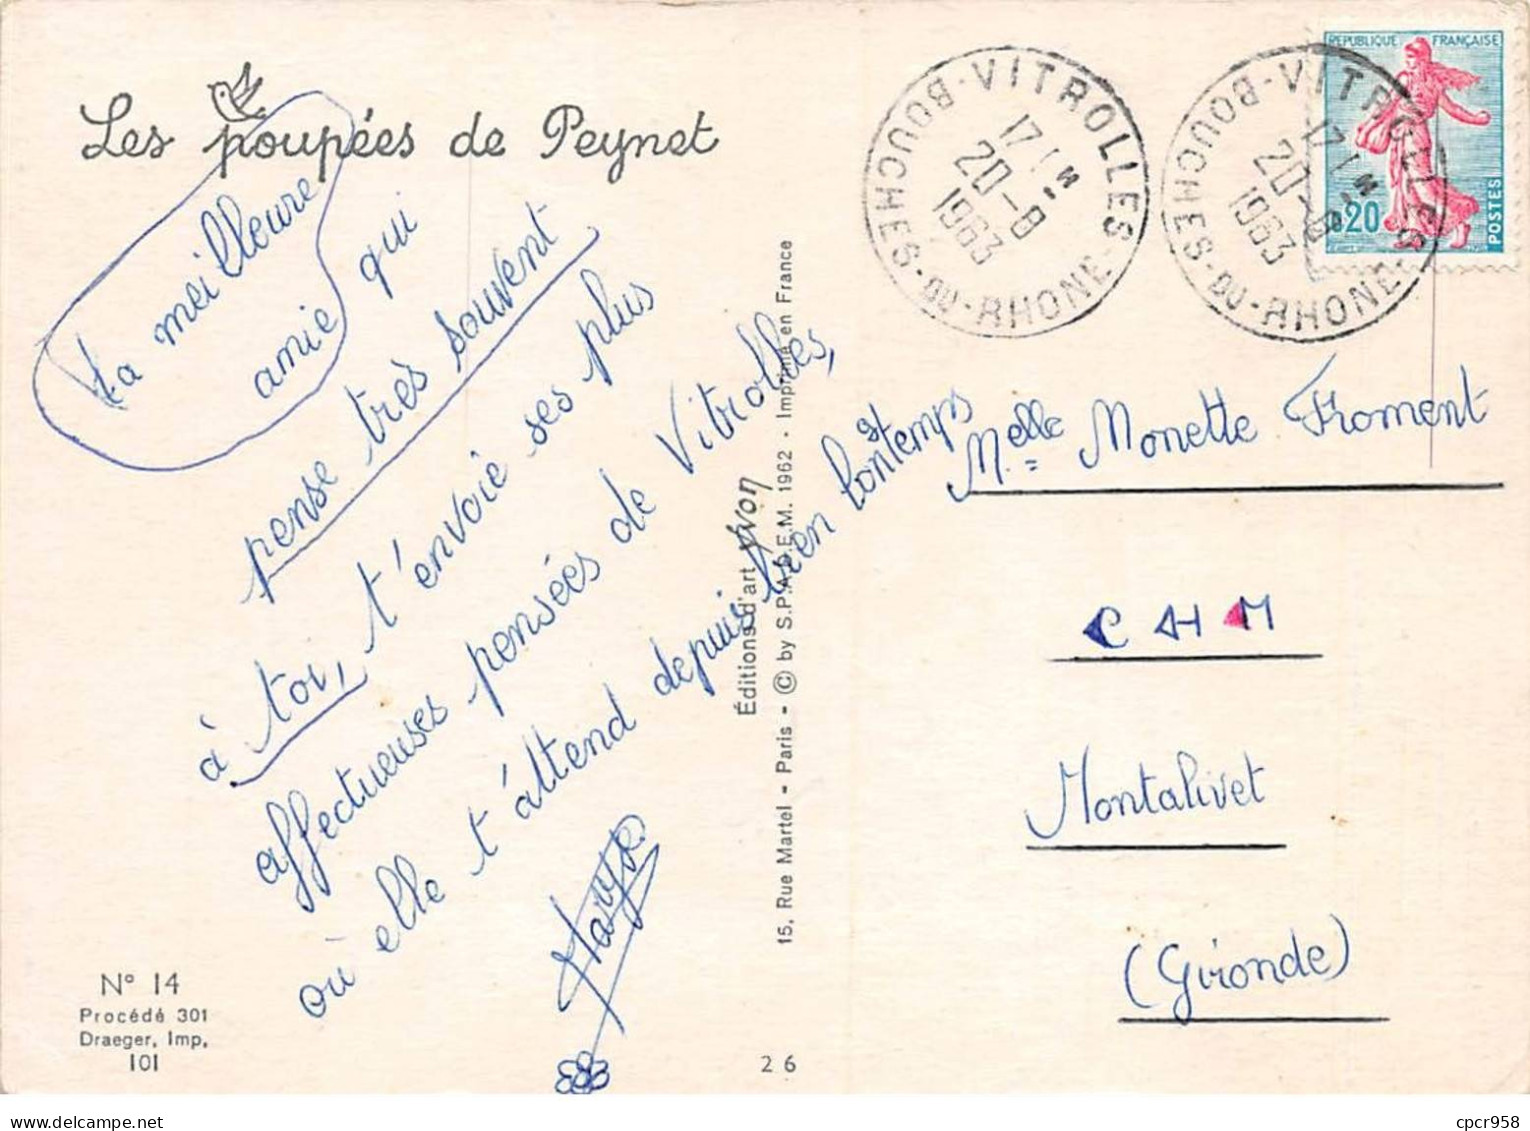 Les poupées de Peynet
Ta meilleure
amie qui
pense très souvent
à toi, t'envoie ses plus
affectueuses pensées de Vitrolles,
où elle t'attend depuis bien longtemps
Maryse
N° 14
Procédé 301
Draeger, Imp,
101
26
Éditions d'art yvon
15, Rue Martel - Paris - © by S.P.A.D.E.M. 1962 - Imprimé en France
VITROLLES
BOUCHES-DU-RHONE
17 H
20-8
1963
VITROLLES
BOUCHES-DU-RHONE
17 H
20-8
1963
REPUBLIQUE FRANÇAISE
0,20
POSTES
Melle Monette Froment
C H M
Montalivet
(Gironde)
cpcr958